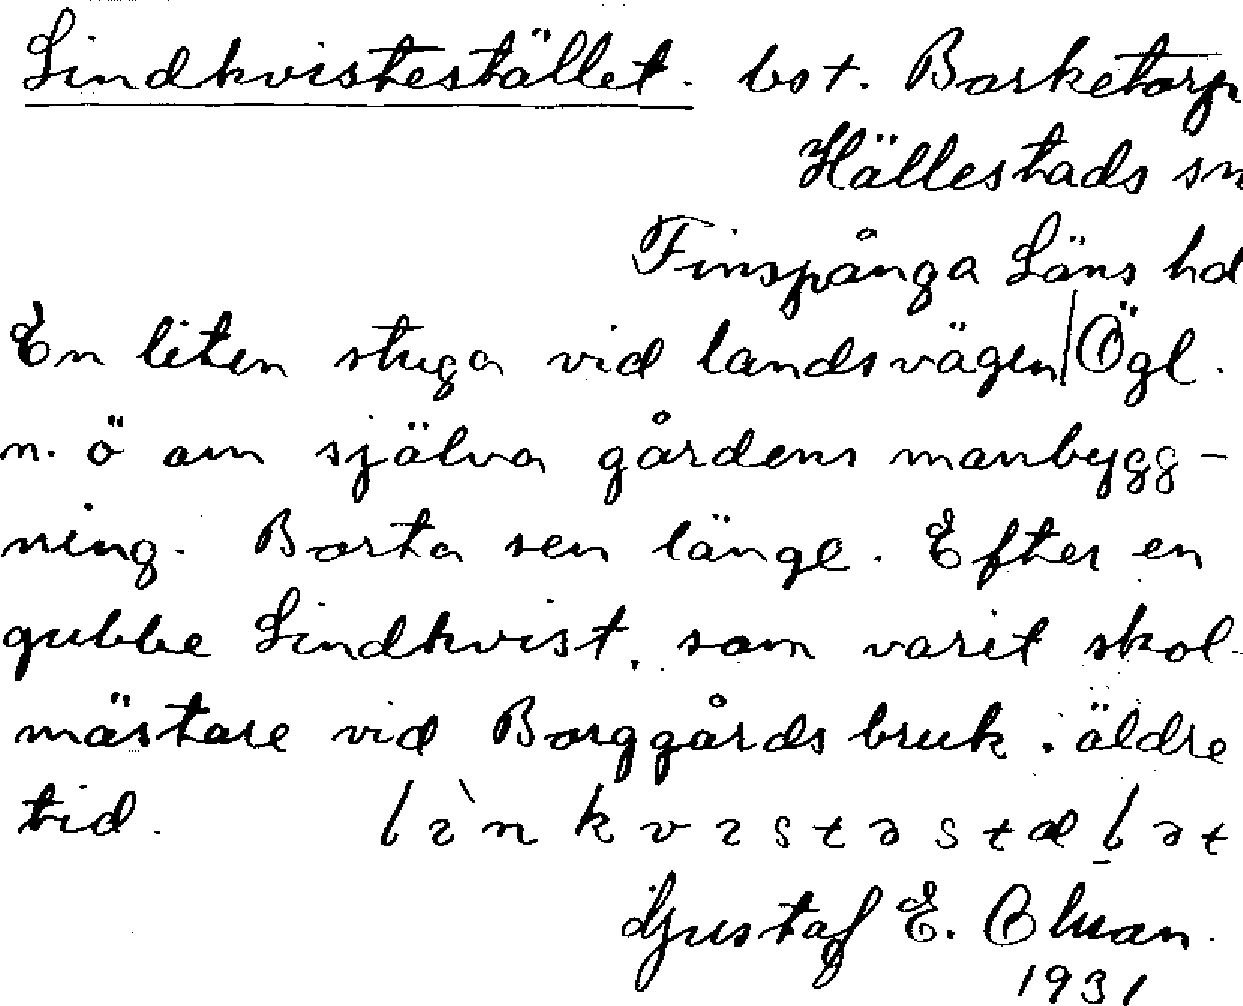 Lindkvistestället. bst. Barketorp
Hällestads sn
Finspånga Läns hd
En liten stuga vid landsvägen / Ögl.
n. ö om själva gårdens manbygg-
ning. Borta sen länge. Efter en
gubbe Lindkvist, som varit skol-
mästare vid Borggårds bruk i äldre
tid. lìnkvɪstəstæl̲ət
Gustaf E. Ohman.
1931